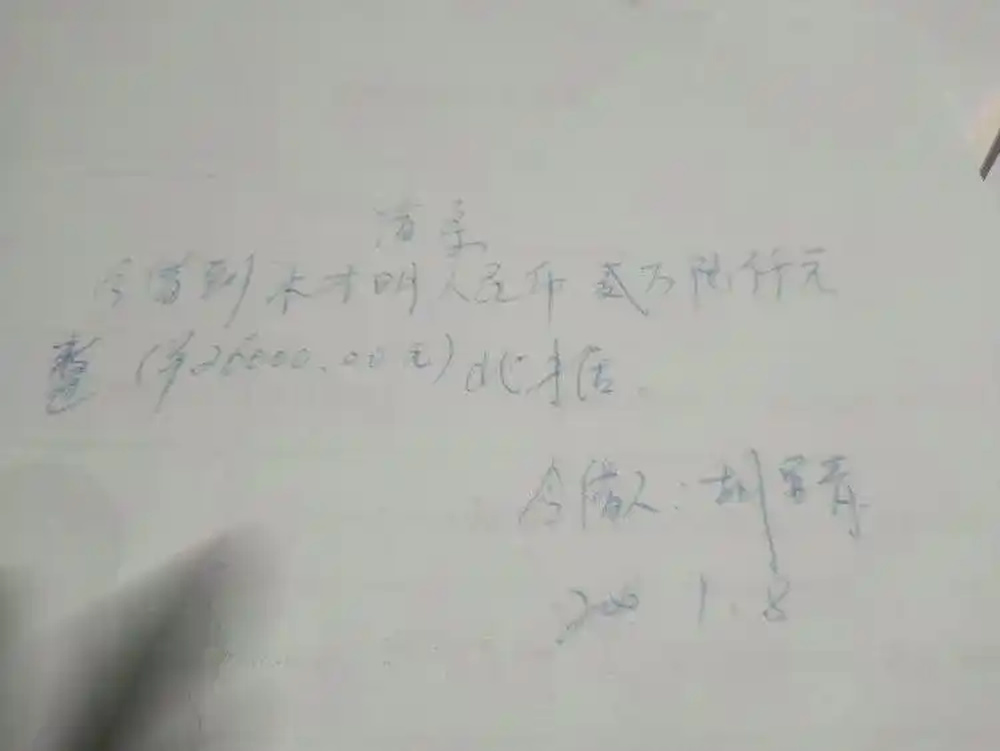 借条
今借到 才明人民币贰万陆仟元
整(¥26000.00元)此据
今借人:胡
200 1.8